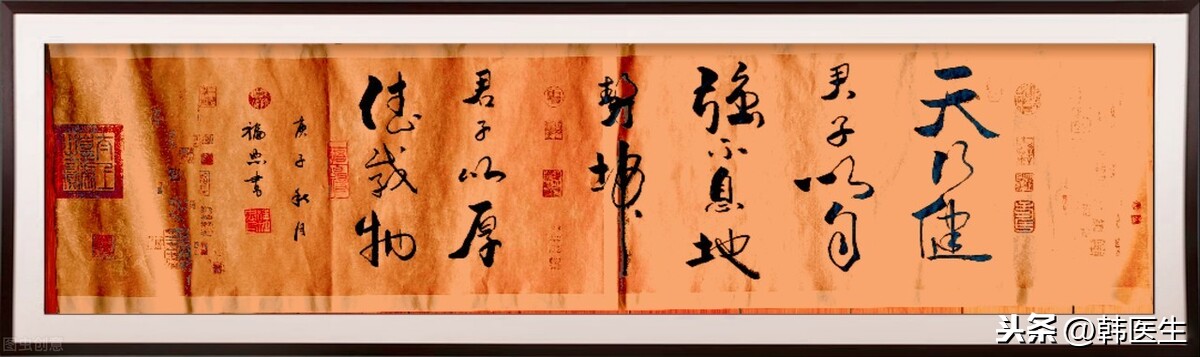 天行健
君子以自
強不息地
勢坤
君子以厚
德載物
庚子秋月
头条 @韩医生
图虫创意